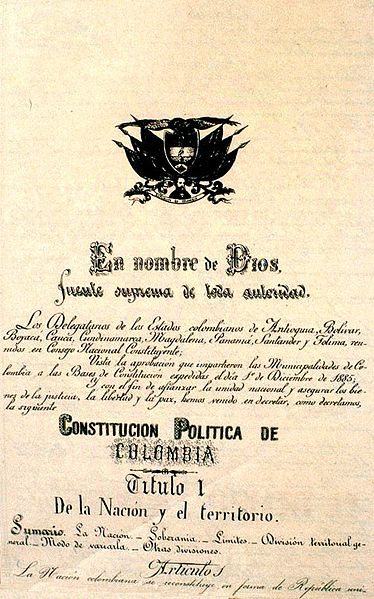 En nombre de Dios,
fuente suprema de toda autoridad.
Los Delegatarios de los Estados colombianos de Antioquia, Bolívar,
Boyacá, Cauca, Cundinamarca, Magdalena, Panamá, Santander y Tolima, reu-
nidos en Consejo Nacional Constituyente;
Vista la aprobación que impartieron las Municipalidades de Co-
lombia a las Bases de Constitución expedidas el día 1º de Diciembre de 1885;
Y con el fin de afianzar la unidad nacional y asegurar los bie-
nes de la justicia, la libertad y la paz, hemos venido en decretar, como decretamos,
la siguiente
CONSTITUCION POLITICA DE
COLOMBIA
Título 1
De la Nación y el territorio.
Sumario. La Nación._ Soberanía._ Límites._ División territorial ge-
neral._ Modo de variarla._ Otras divisiones.
Artículos
La Nación colombiana se reconstituye en forma de República uni-